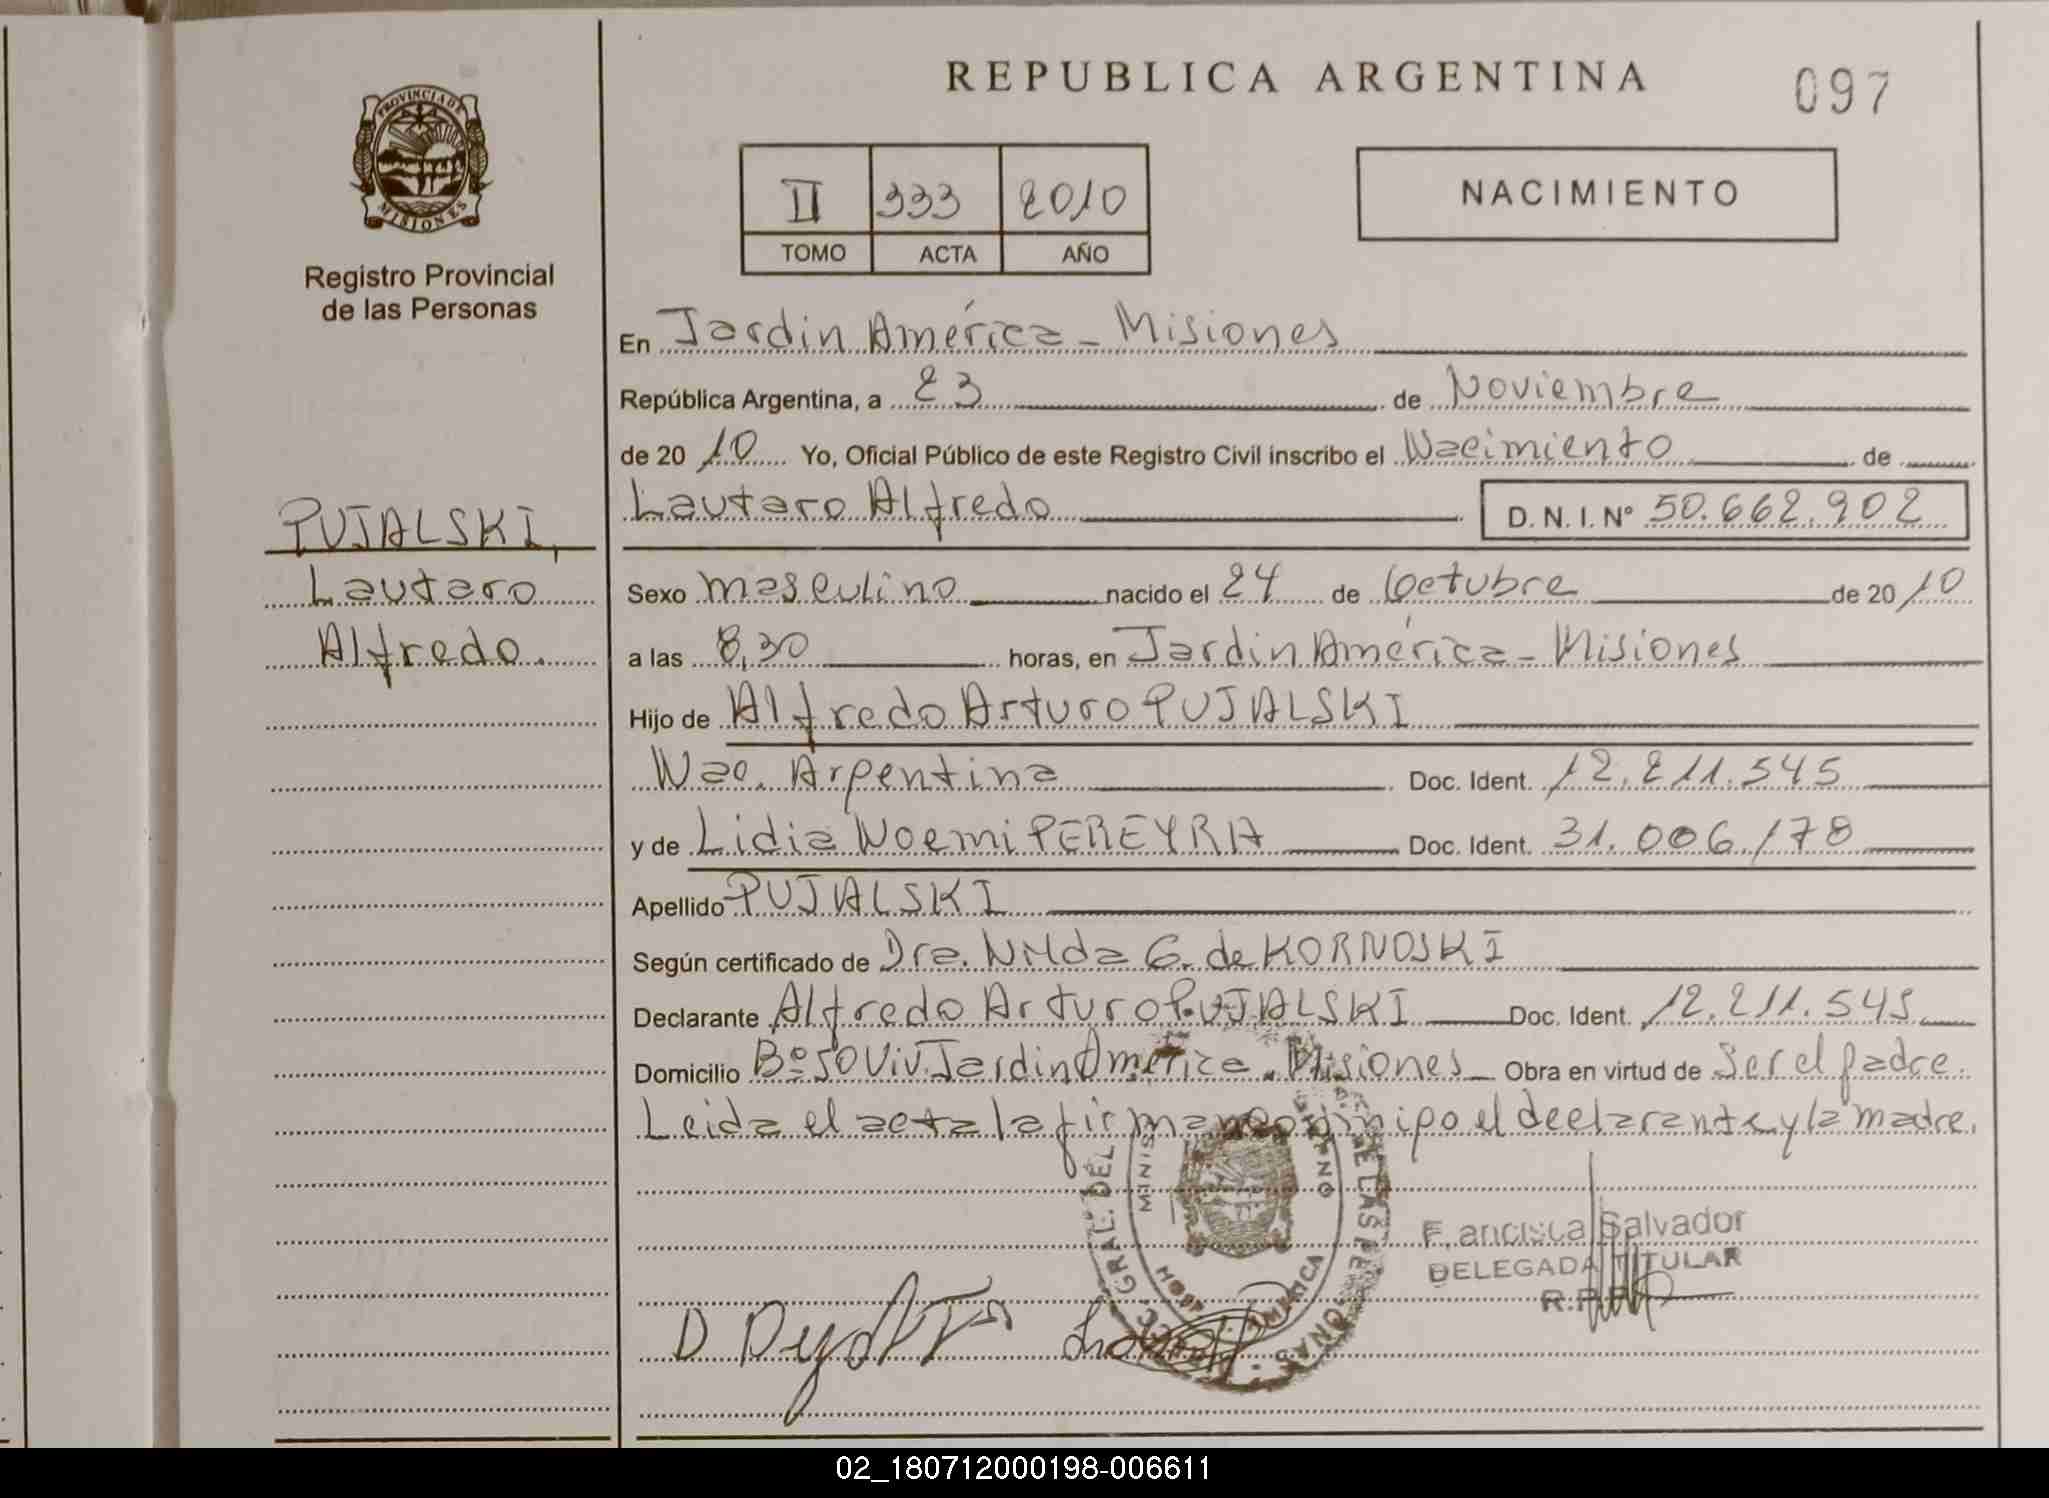 PROVINCIA DE
MISIONES
Registro Provincial
de las Personas
PUJALSKI,
Lautaro
Alfredo.
REPUBLICA ARGENTINA
097
II 333 2010
TOMO ACTA AÑO
NACIMIENTO
En Jardin América - Misiones
República Argentina, a 23 de Noviembre
de 20 10 Yo, Oficial Público de este Registro Civil inscribo el Nacimiento de
Lautaro Alfredo D. N. I. Nº 50.662.902
Sexo masculino nacido el 24 de Octubre de 20 10
a las 8,30 horas, en Jardin América - Misiones
Hijo de Alfredo Arturo PUJALSKI
Nac. Argentina Doc. Ident. 12.211.545
y de Lidia Noemi PEREYRA Doc. Ident. 31.006.178
Apellido PUJALSKI
Según certificado de Dra. Nilda G. de KORNOSKI
Declarante Alfredo Arturo PUJALSKI Doc. Ident. 12.211.545
Domicilio Bº 50 Viv. Jardin América - Misiones Obra en virtud de Ser el padre.
Leida el acta la firman conmigo el declarante y la madre.
GRAL. DEL
DE LAS PERSONAS
AMERICA
Francisca Salvador
DELEGADA TITULAR
02_180712000198-006611